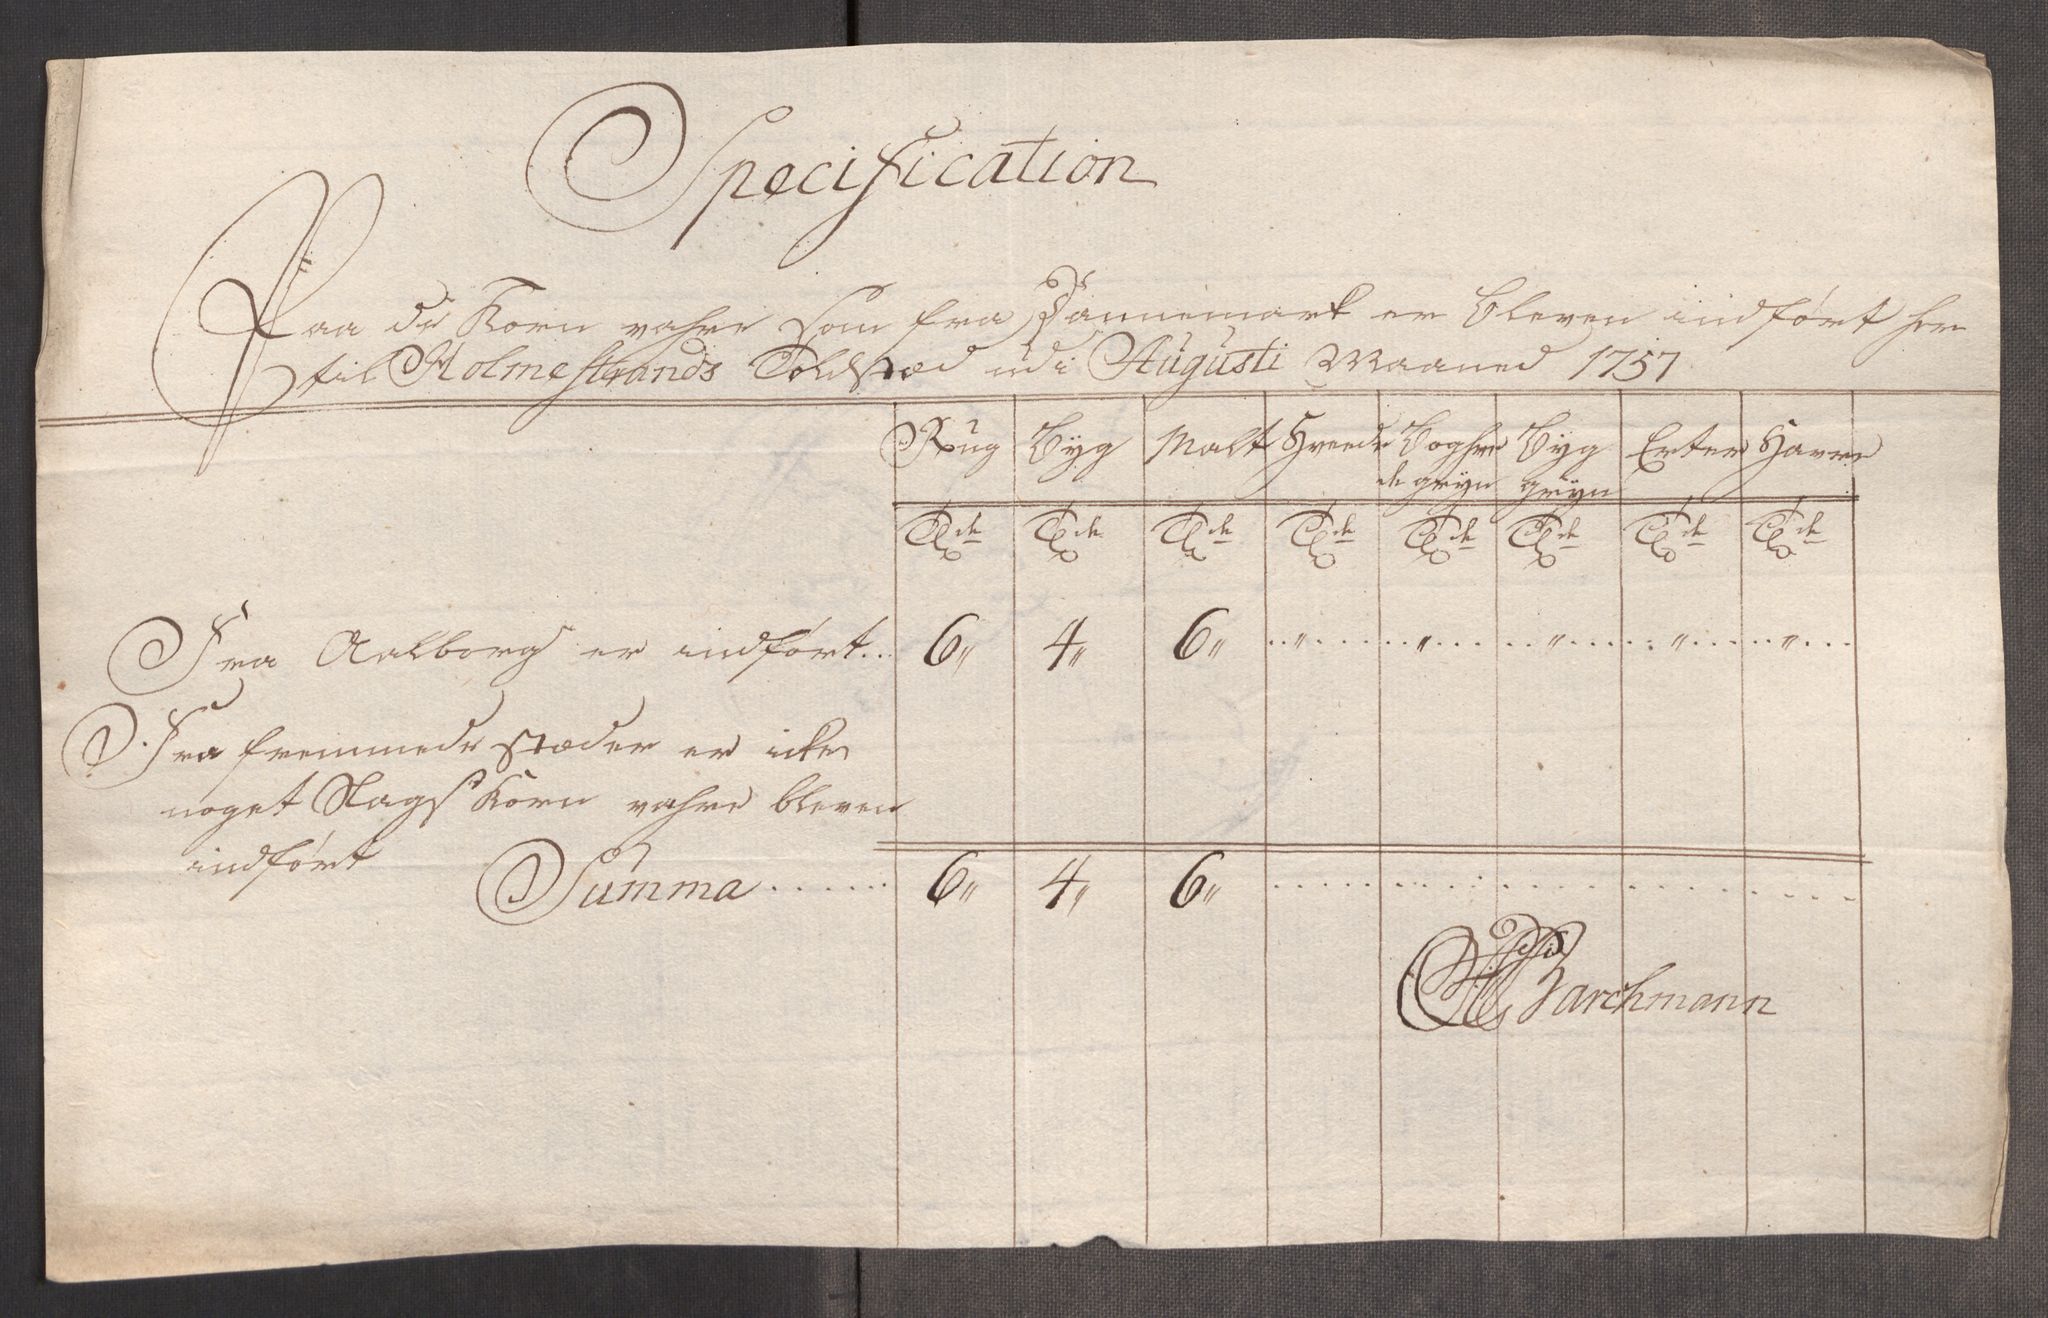 Specification
Paa de Korn vahre som fra Dannemark er bleven indført her
til Holmestrands Toldsted udi Augusti Maaned 1757
Rug Byg Malt Hvede Boghve Byg Erter Havre
de gryn gryn
Tde Tde Tde Tde Tde Tde Tde Tde
Fra Aalborg er indført.. 6" 4" 6" " " " " "
Fra fremmede stæder er icke
noget Slags Korn vahre bleven
indført
Summa ...... 6" 4" 6"
Barchmann